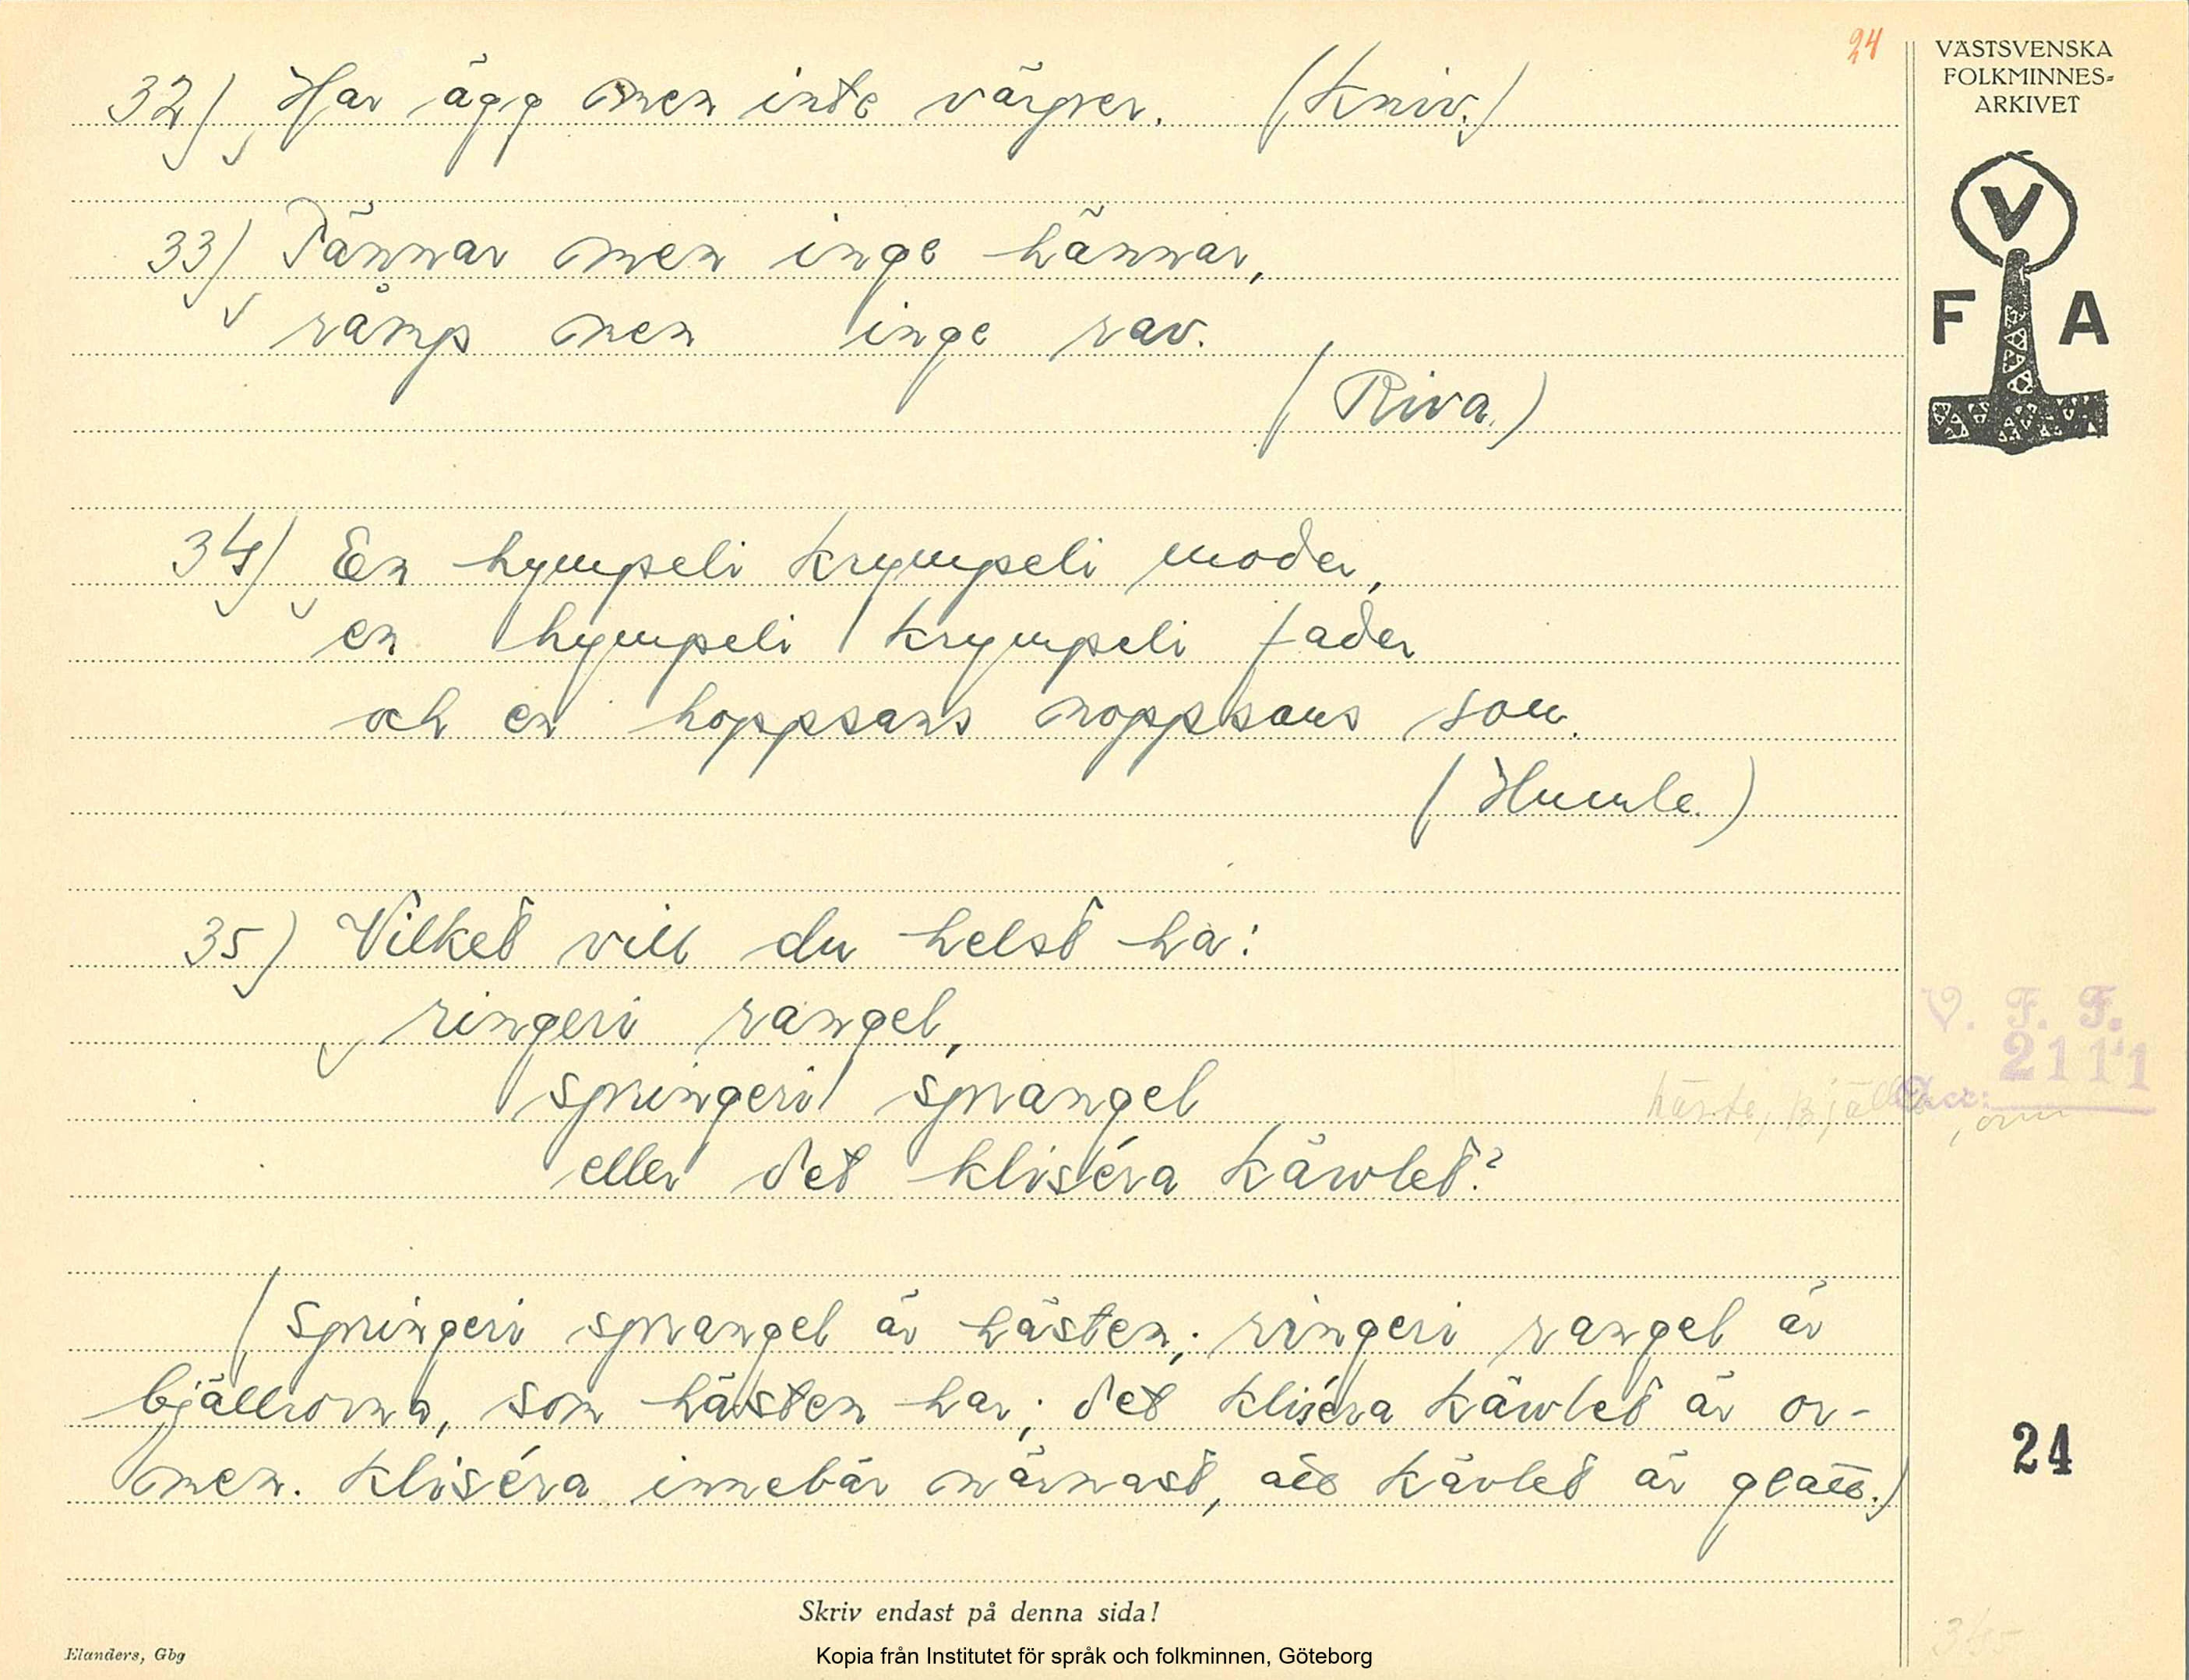 24
VÄSTSVENSKA
FOLKMINNES=
ARKIVET
V
F A
32) Har ägg men inte värper. (Kniv.)
33) Tännar men inge hännar,
råmp men inge rav.
(Riva.)
34) En hympeli krympeli moder,
en hympeli krympeli fader
och en hoppsans noppsans son.
(Humle.)
35) Vilket vill du helst ha:
ringeri rangel,
springeri sprangel
eller det kliséra kävlet?
häste, Bjälla, orm
V. F. F.
2111
Acc:
(Springeri sprangel är hästen; ringeri rangel är
bjällrorna, som hästen har; det kliséra kävlet är or-
men. Kliséra innebär närmast, att kävlet är glatt.)
24
Skriv endast på denna sida!
Elanders, Gbg
Kopia från Institutet för språk och folkminnen, Göteborg